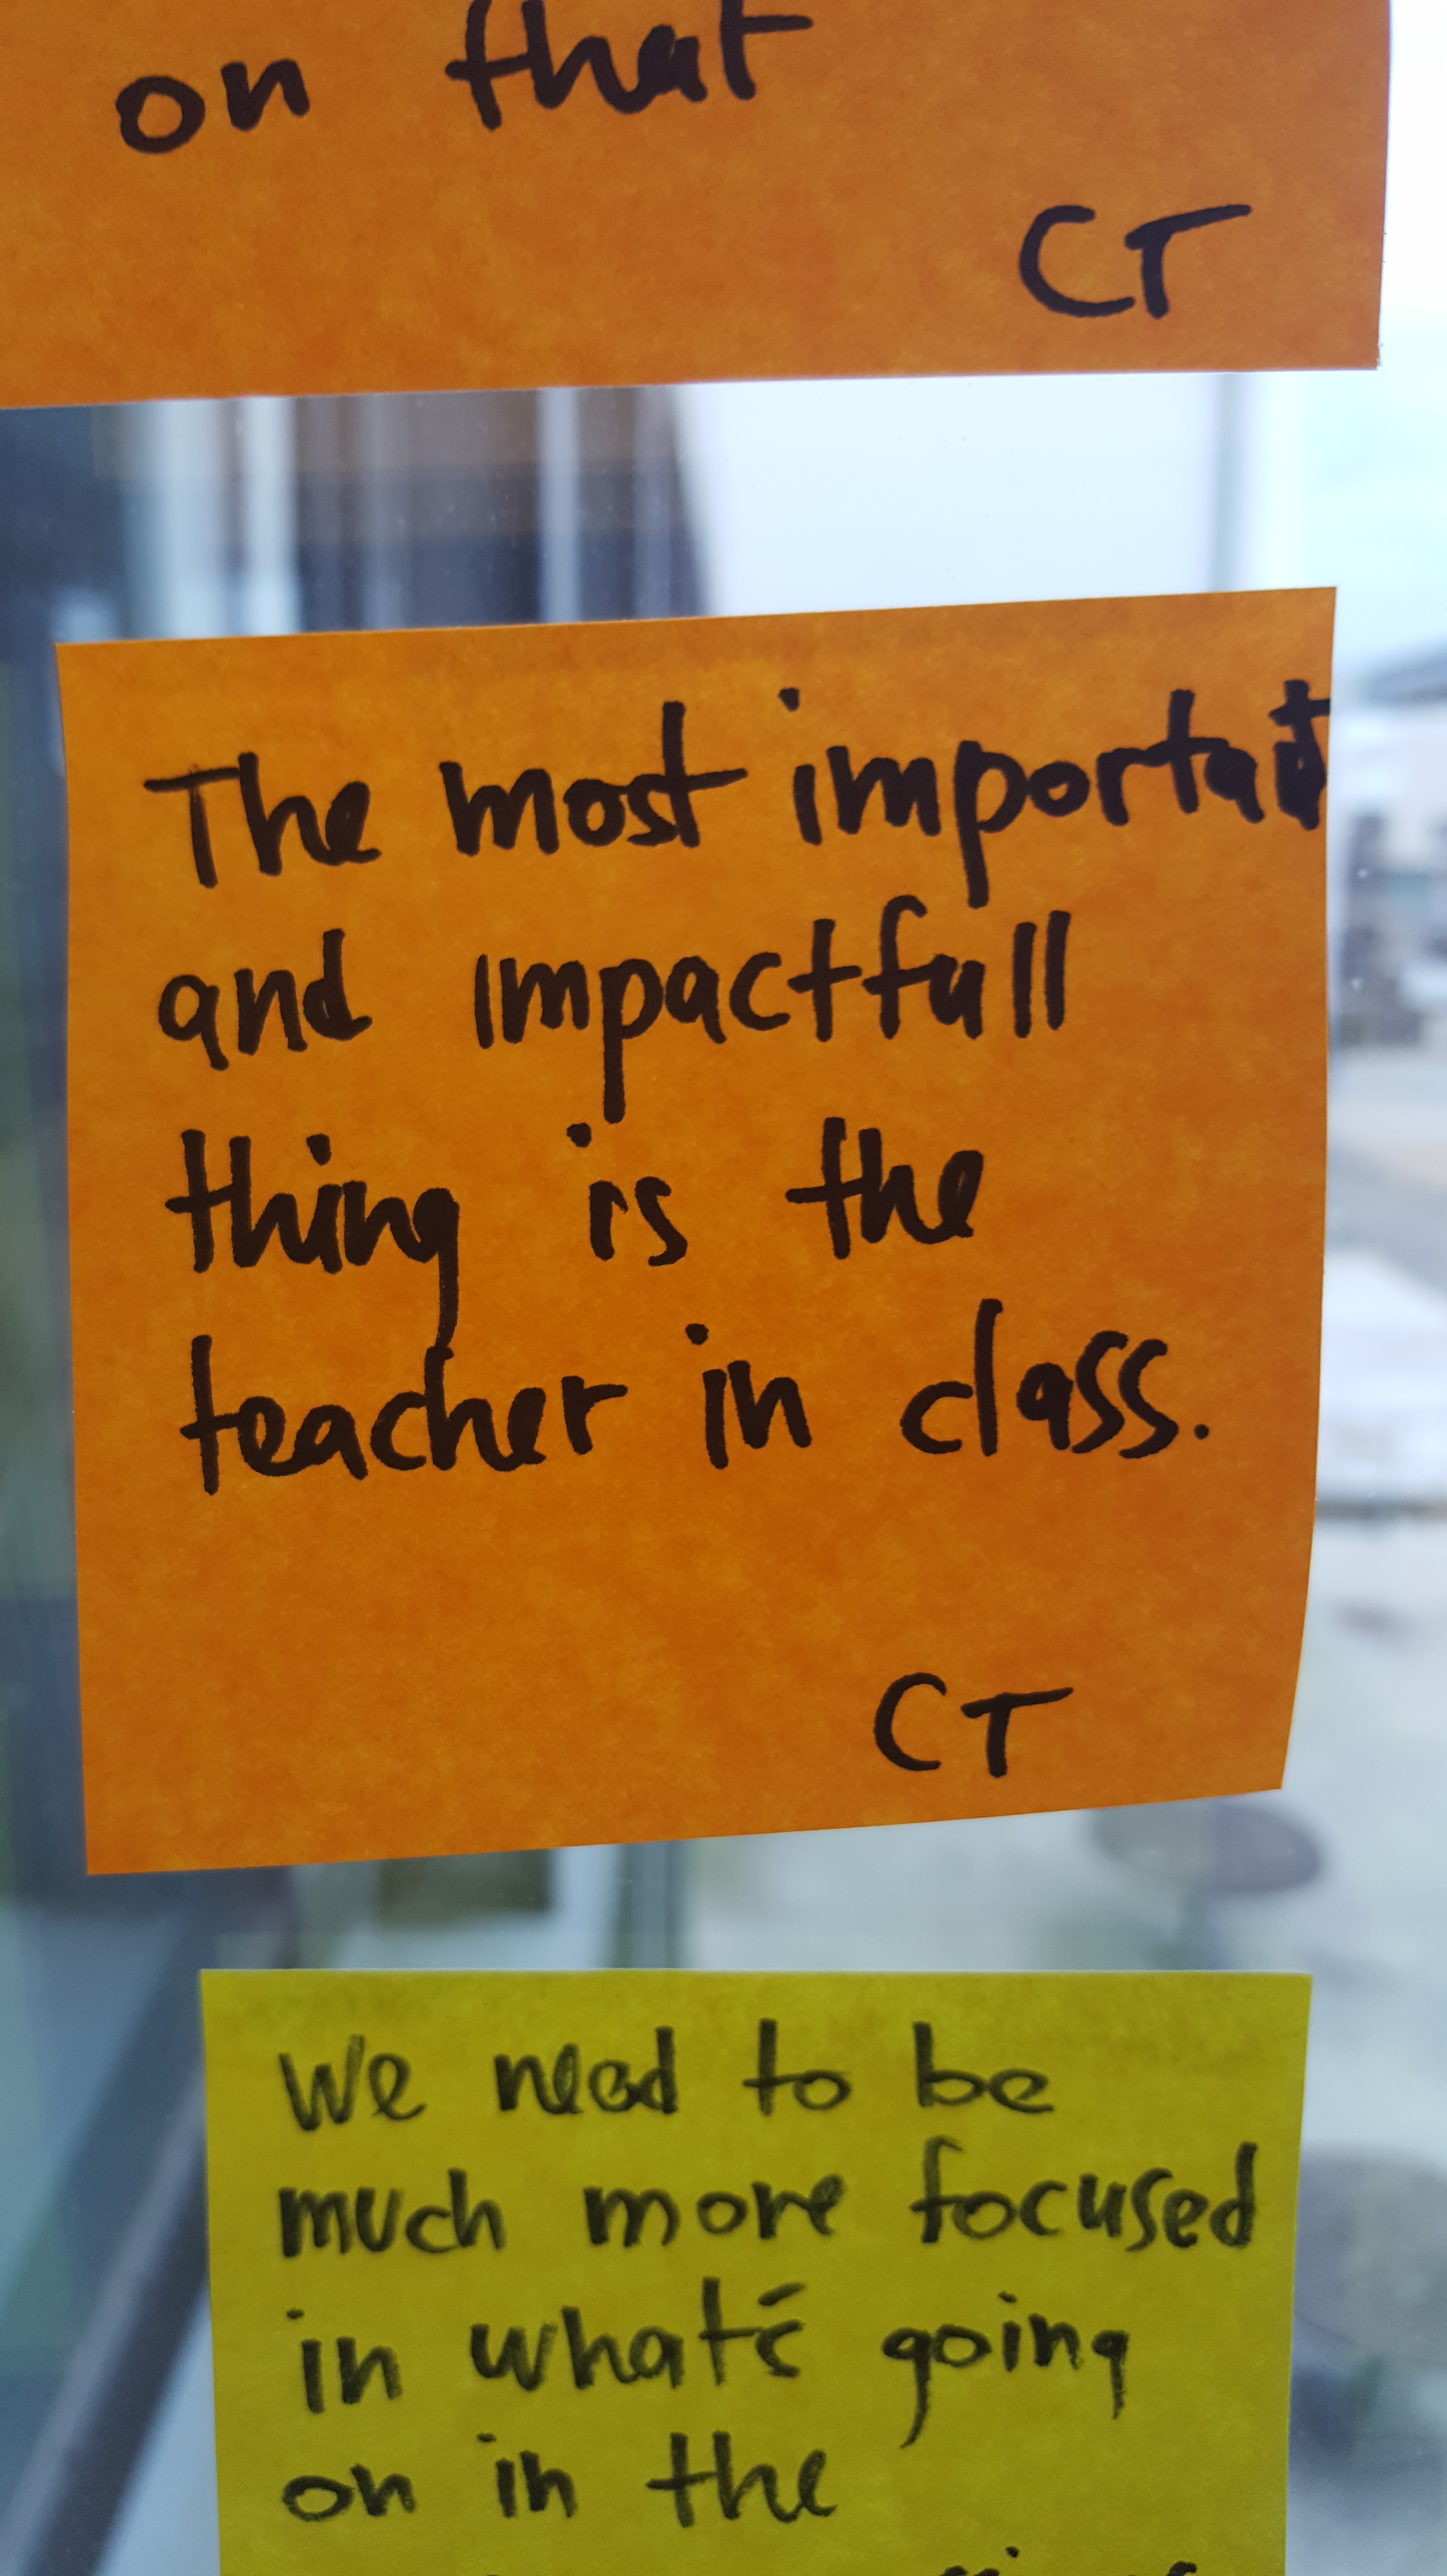 on that
CT
The most important
and impactfull
thing is the
teacher in class.
CT
We need to be
much more focused
in what's going
on in the